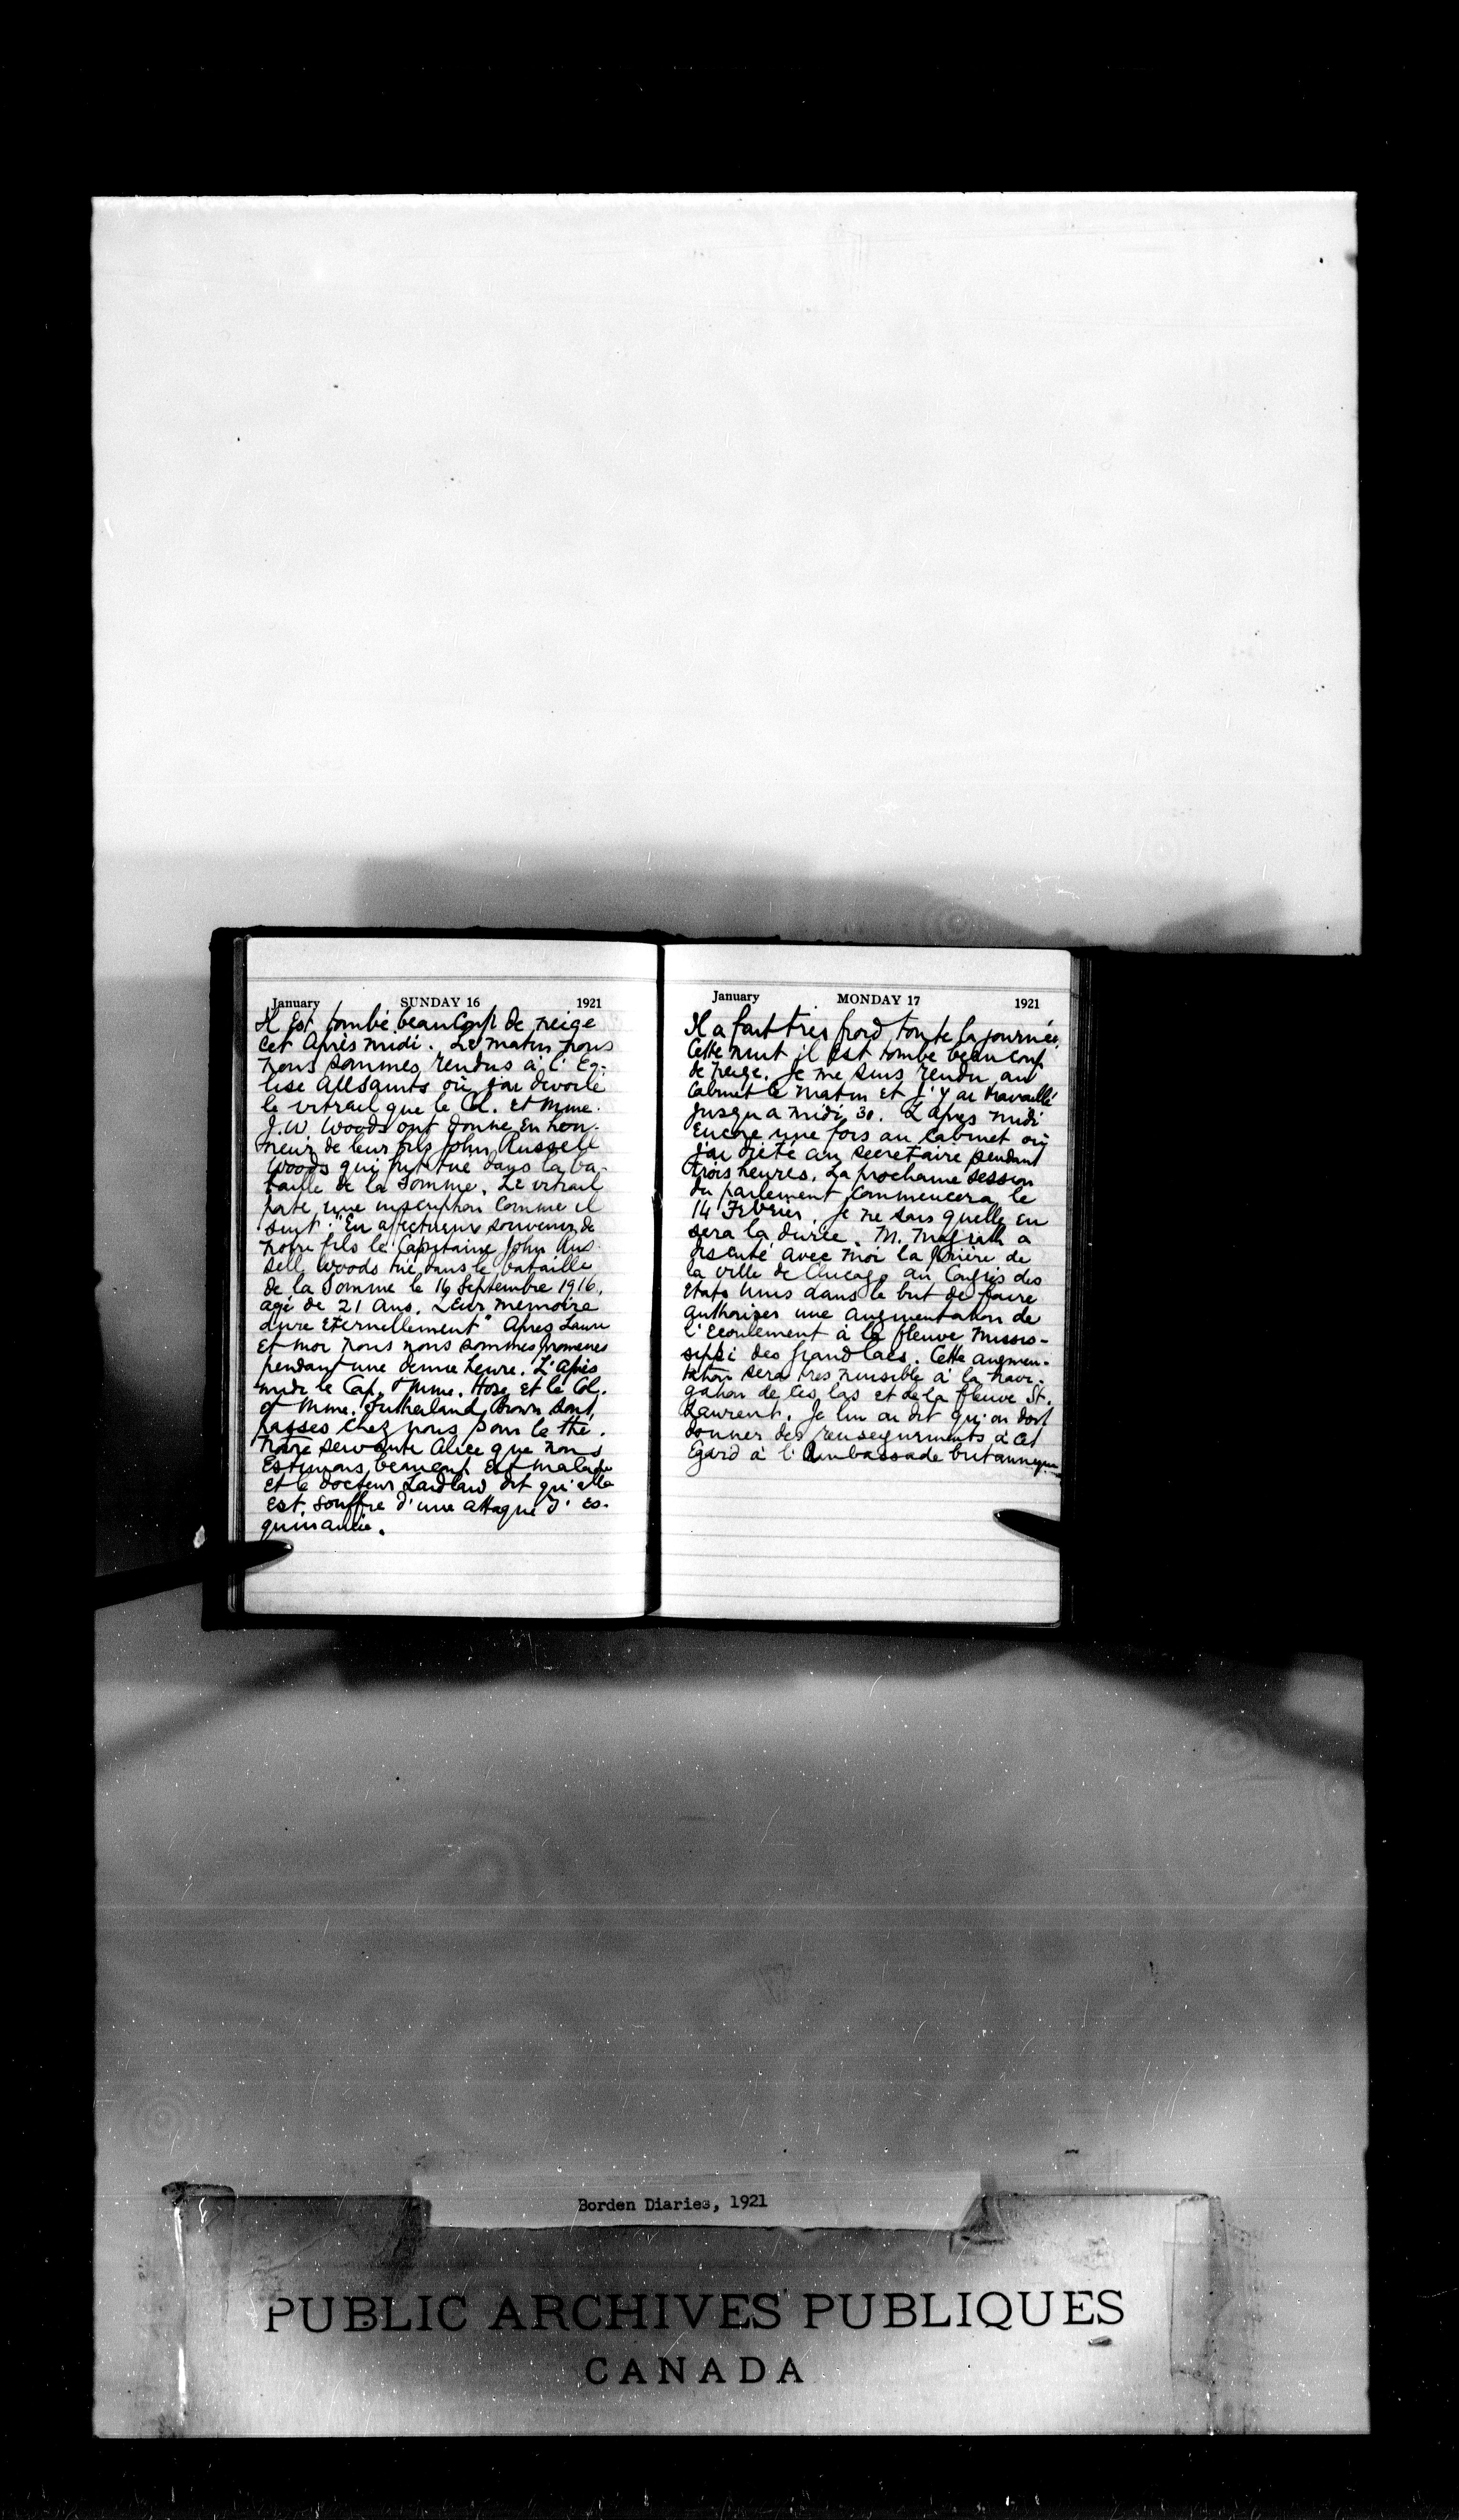 January SUNDAY 16 1921
Il est tombé beaucoup de neige
cet après midi. Le matin nous
nous sommes rendus à l' Eg-
lise All Saints où j'ai devoile
le vitrail que le Col. et Mme.
J.W. Woods ont donné en hon-
neur de leur fils John Russell
Woods qui fut tué dans la ba-
taille de la Somme. Le vitrail
porte une inscription comme il
suit: "En affectueux souvenir de
notre fils le Capitaine John Rus-
sell Woods tué dans le bataille
de la Somme le 16 Septembre 1916,
agé de 21 ans. Leur memoire
dure eternellement" Apres Laura
et moi nous nous sommes promenés
pendant une demie heure. L'après
midi le Cap. & Mme. Hose et le Col.
& Mme. Sutherland Brown sont
passes chez nous pour le thé.
Notre servante Alice que nous
estimons beaucoup est malade
et le docteur Laidlaw dit qu'elle
est souffre d'une attaque d' es-
quinancie.
January MONDAY 17 1921
Il a fait très froid toute la journée.
Cette nuit il est tombé beaucoup
de neige. Je me suis rendu au
Cabinet le matin et j'y ai travaillé
jusqu'a midi 30. L'apres midi
encore une fois au Cabinet où
j'ai dicté au secretaire pendant
trois heures. La prochaine session
du parlement commencera le
14 Fevrier. Je ne sais quelle en
sera la durée. M. Magrath a
discuté avec moi la prière de
la ville de Chicago au Congrès des
Etats Unis dans le but de faire
authoriser une augmentation de
l'ecoulement à la fleuve Missis-
sippi des grand lacs. Cette augmen-
tation sera tres nuisible à la navi-
gation de ces lacs et de la fleuve St.
Laurent. Je lui ai dit qu'on doit
donner des renseignements à cet
égard à l'Ambassade britannique
Borden Diaries, 1921
PUBLIC ARCHIVES PUBLIQUES
CANADA